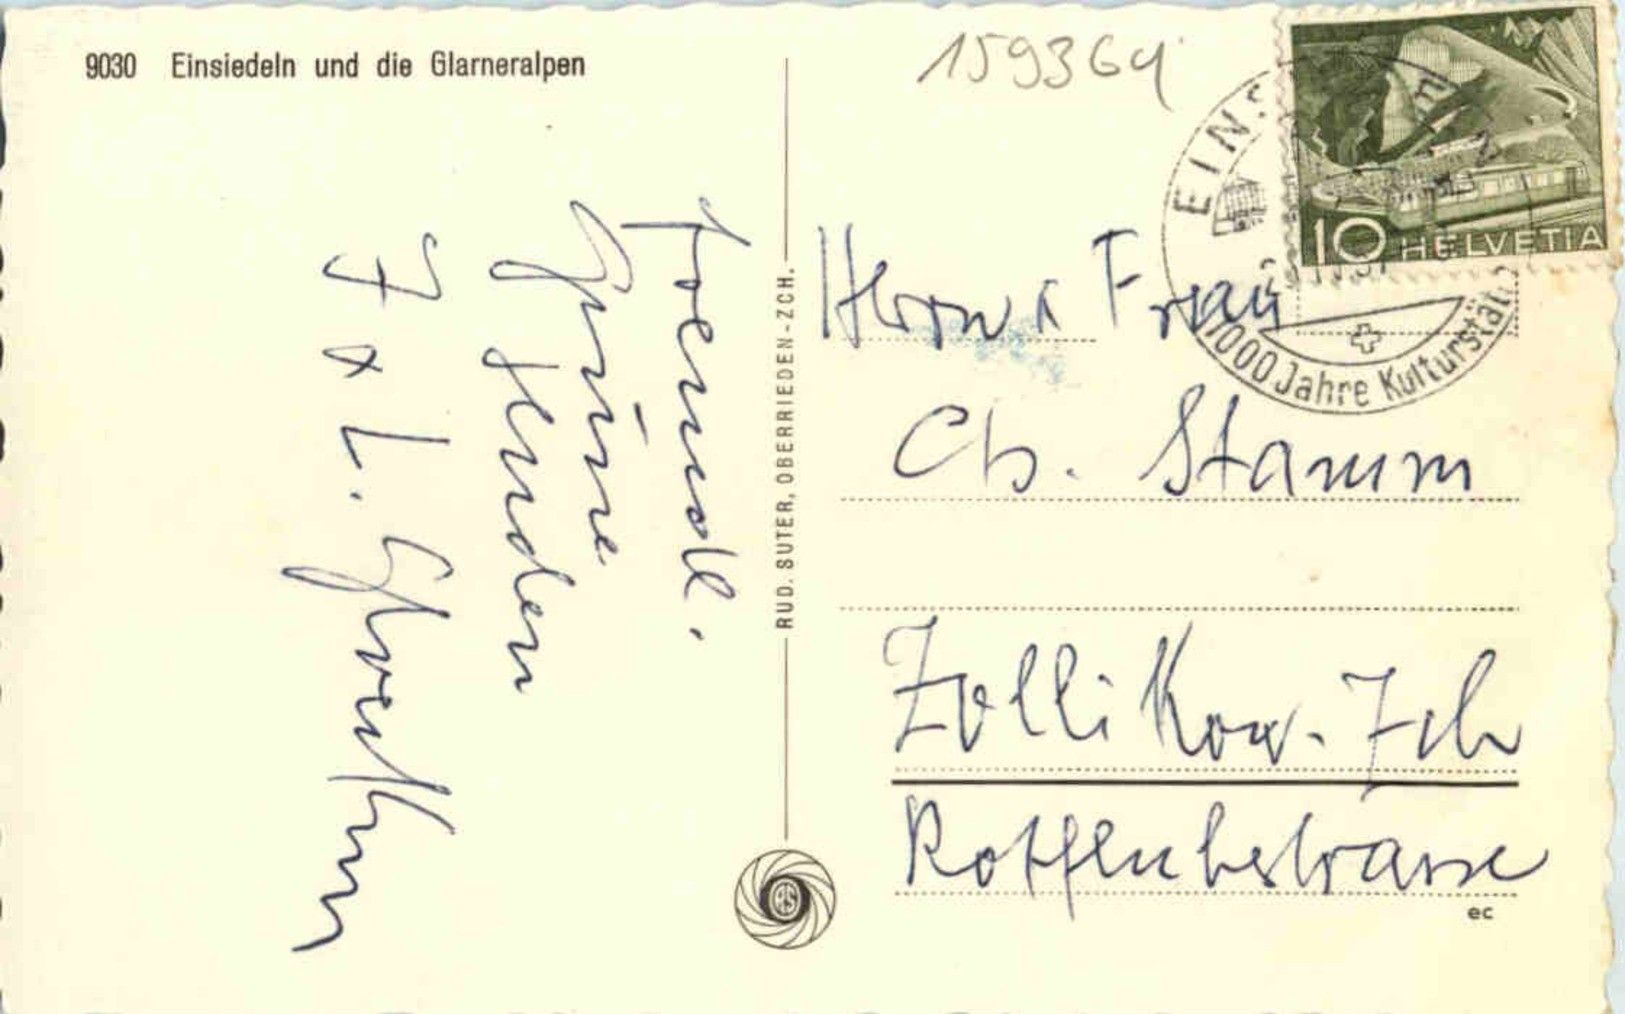 9030 Einsiedeln und die Glarneralpen
159364
10 HELVETIA
EINS
1000 Jahre Kulturstät
Freundl.
Grüsse
senden
RUD. SUTER, OBERRIEDEN-ZCH.
Herrn & Frau
Ch. Stamm
Zollikon-Zch
Rotfluhstrasse
ec